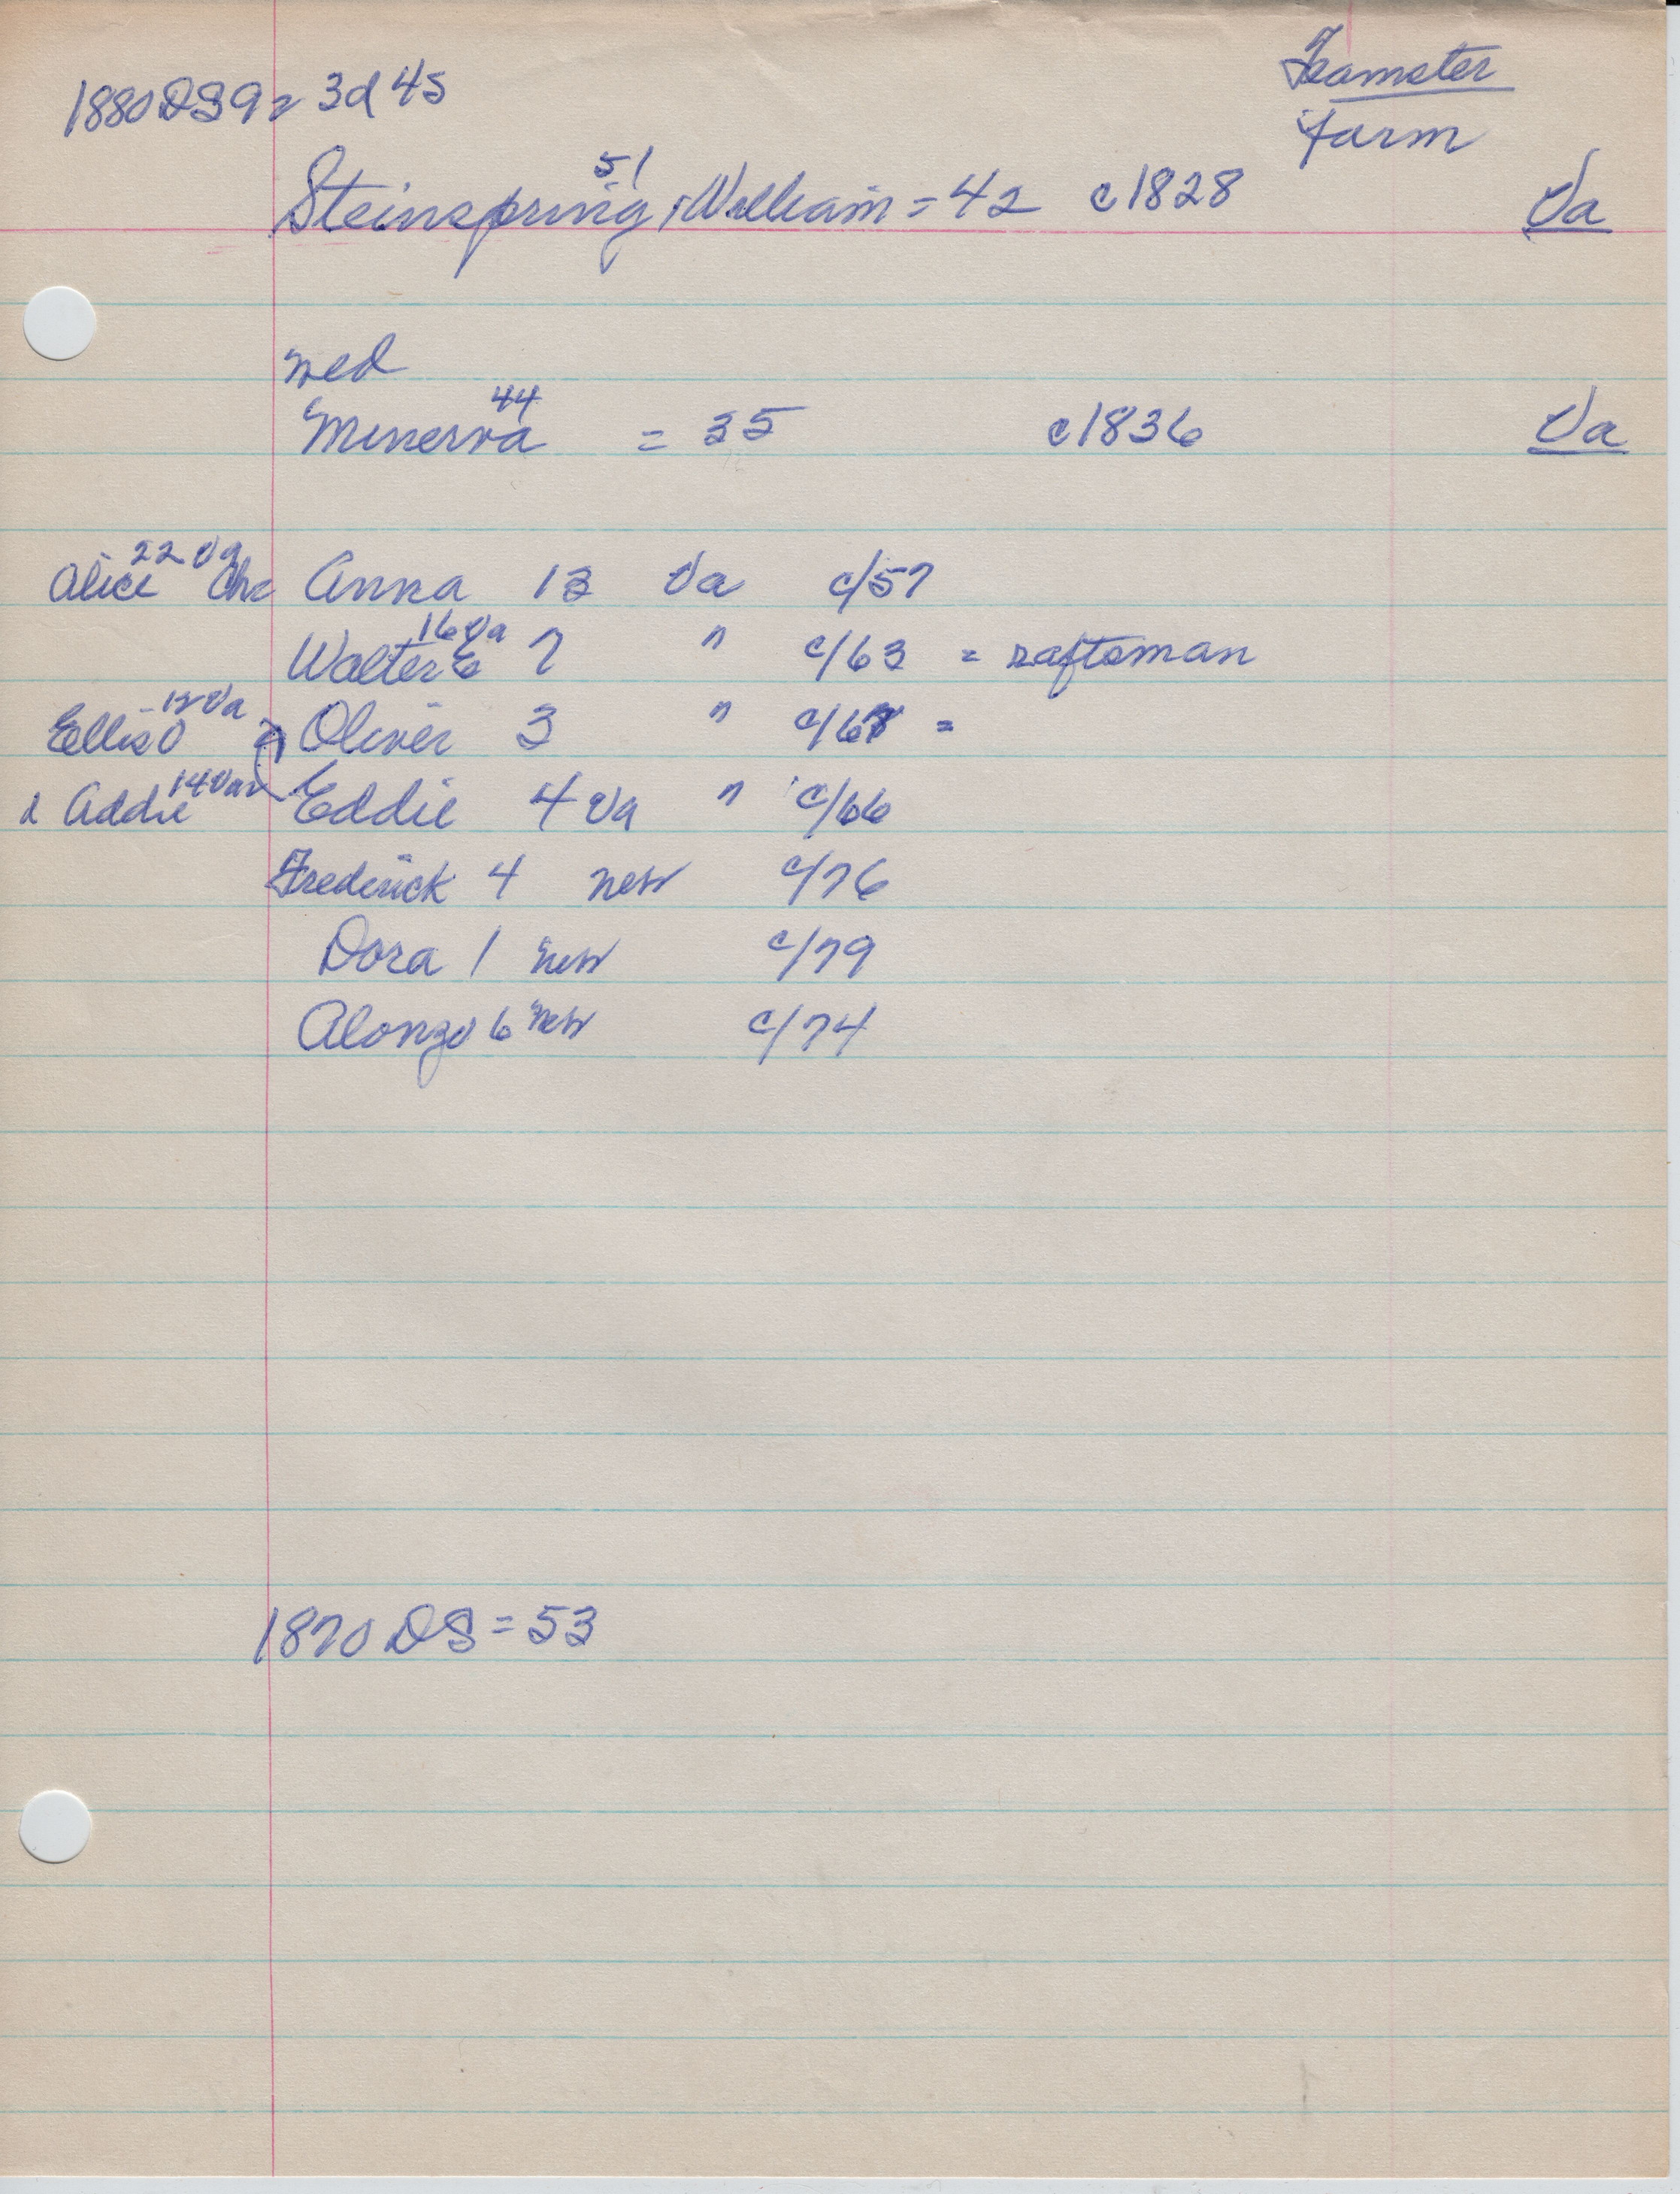 Teamster
1880 DS 92 3d 4s
Farm
51
Steinspring, William = 42 c1828 Va
med
44
Minerva = 35 c1836 Va
22 Va
Alice Anna 13 Va c/57
16 Va
Walter E 7 " c/63 = raftsman
12 Va
Ellis O Oliver 3 " c/67 =
14 Va
& Addie Eddie 4 Va " c/66
Frederick 4 new c/76
Dora 1 new c/79
Alonzo 6 new c/74
1870 DS = 53